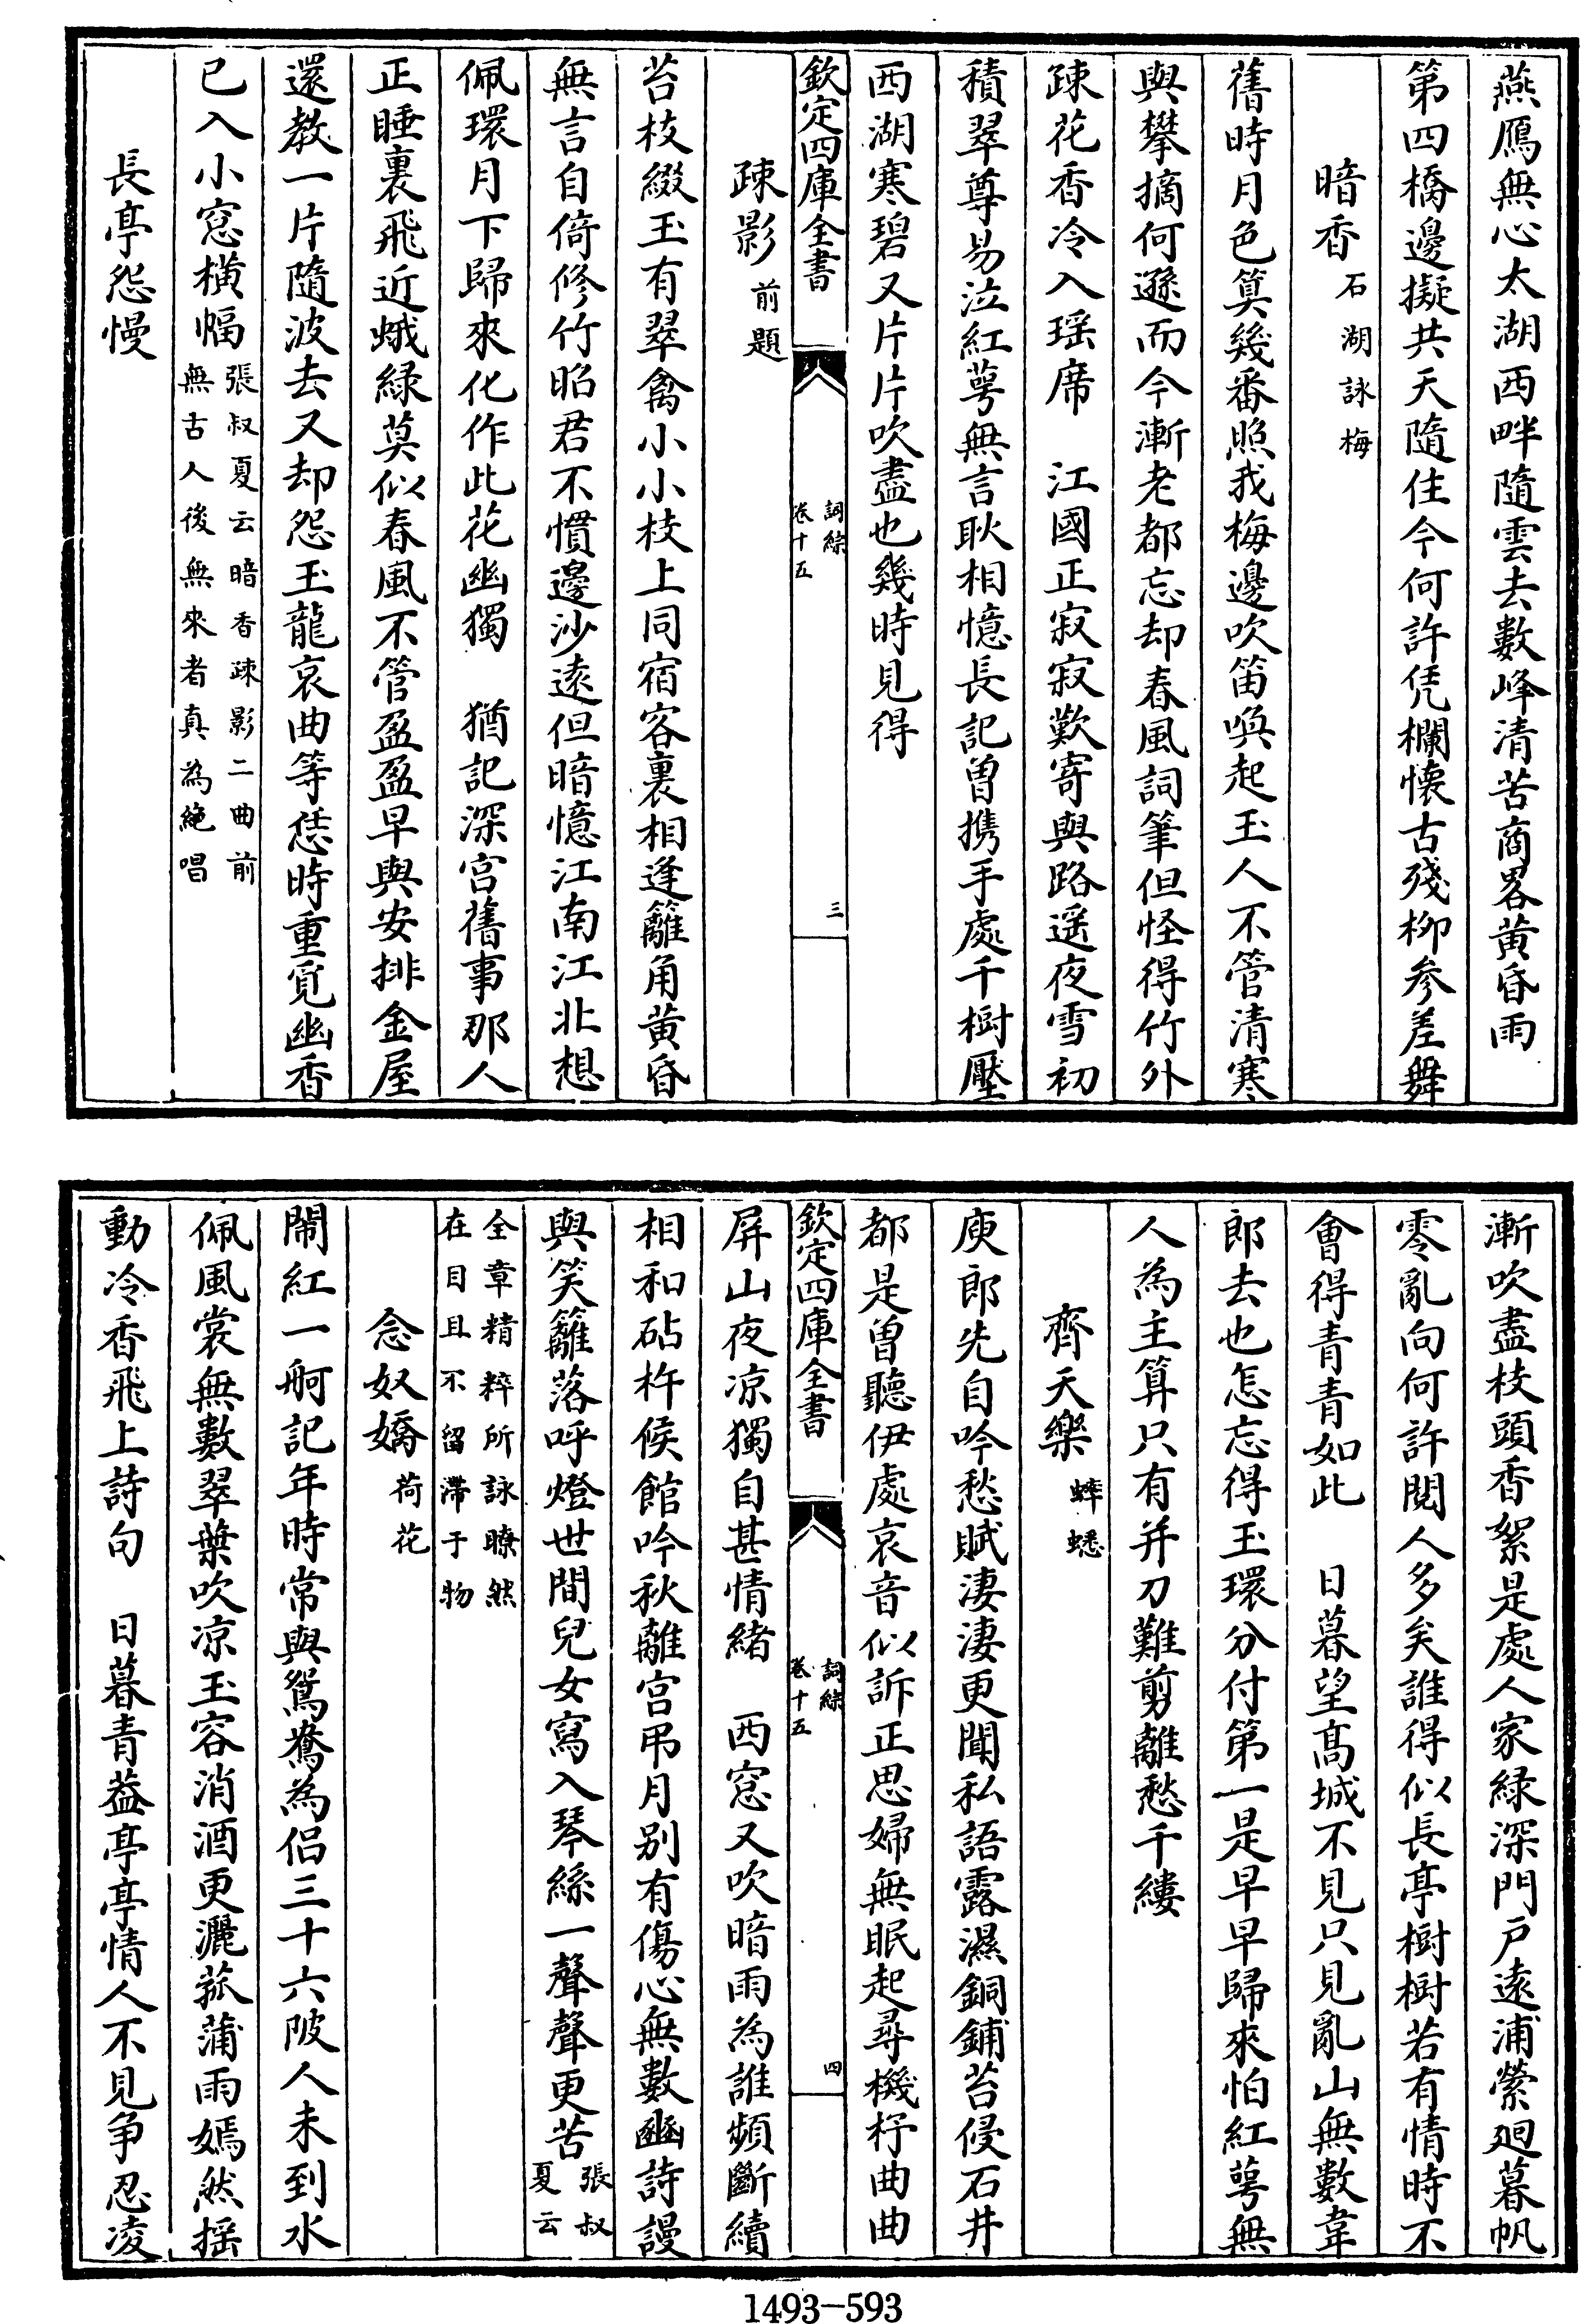 燕鴈無心太湖西畔隨雲去數峰清苦商畧黄昏雨
第四橋邊擬共天隨住今何許凭欄懐古殘柳参差舞
暗香石湖詠梅
舊時月色筭幾番照我梅邊吹笛喚起玉人不管清寒
與攀摘何遜而今漸老都忘却春風詞筆但怪得竹外
疎花香冷入瑶席　江國正寂寂歎寄與路遥夜雪初
積翠尊易泣紅萼無言耿相憶長記曽携手處千樹壓
西湖寒碧又片片吹盡也幾時見得
欽定四庫全書
詞綜
卷十五
三
疎影前題
苔枝綴玉有翠禽小小枝上同宿客裏相逢籬角黄昏
無言自倚修竹昭君不慣邊沙遠但暗憶江南江北想
佩環月下歸來化作此花幽獨　猶記深宫舊事那人
正睡裏飛近蛾緑莫似春風不管盈盈早與安排金屋
還教一片隨波去又却怨玉龍哀曲等恁時重覓幽香
已入小窓横幅張叔夏云暗香疎影二曲前
無古人後無來者真為絶唱
長亭怨慢
漸吹盡枝頭香絮是處人家緑深門戶遠浦縈廻暮帆
零亂向何許閱人多矣誰得似長亭樹樹若有情時不
會得青青如此　日暮望髙城不見只見亂山無數韋
郎去也怎忘得玉環分付第一是早早歸來怕紅萼無
人為主算只有并刀難剪離愁千縷
齊天樂蟀蟋
庾郎先自吟愁賦淒淒更聞私語露濕銅鋪苔侵石井
都是曽聽伊處哀音似訴正思婦無眠起尋機杼曲曲
屏山夜凉獨自甚情緒　西窓又吹暗雨為誰頻斷續
相和砧杵候館吟秋離宫弔月别有傷心無數豳詩謾
與笑籬落呼燈世間兒女寫入琴絲一聲聲更苦張叔
夏云
全章精粹所詠瞭然
在目且不留滯于物
念奴嬌荷花
閙紅一舸記年時常與鴛鴦為侣三十六陂人未到水
佩風裳無數翠葉吹凉玉容消酒更灑菰蒲雨嫣然揺
動冷香飛上詩句　日暮青葢亭亭情人不見争忍凌
欽定四庫全書
詞綜
卷十五
四
1493-593